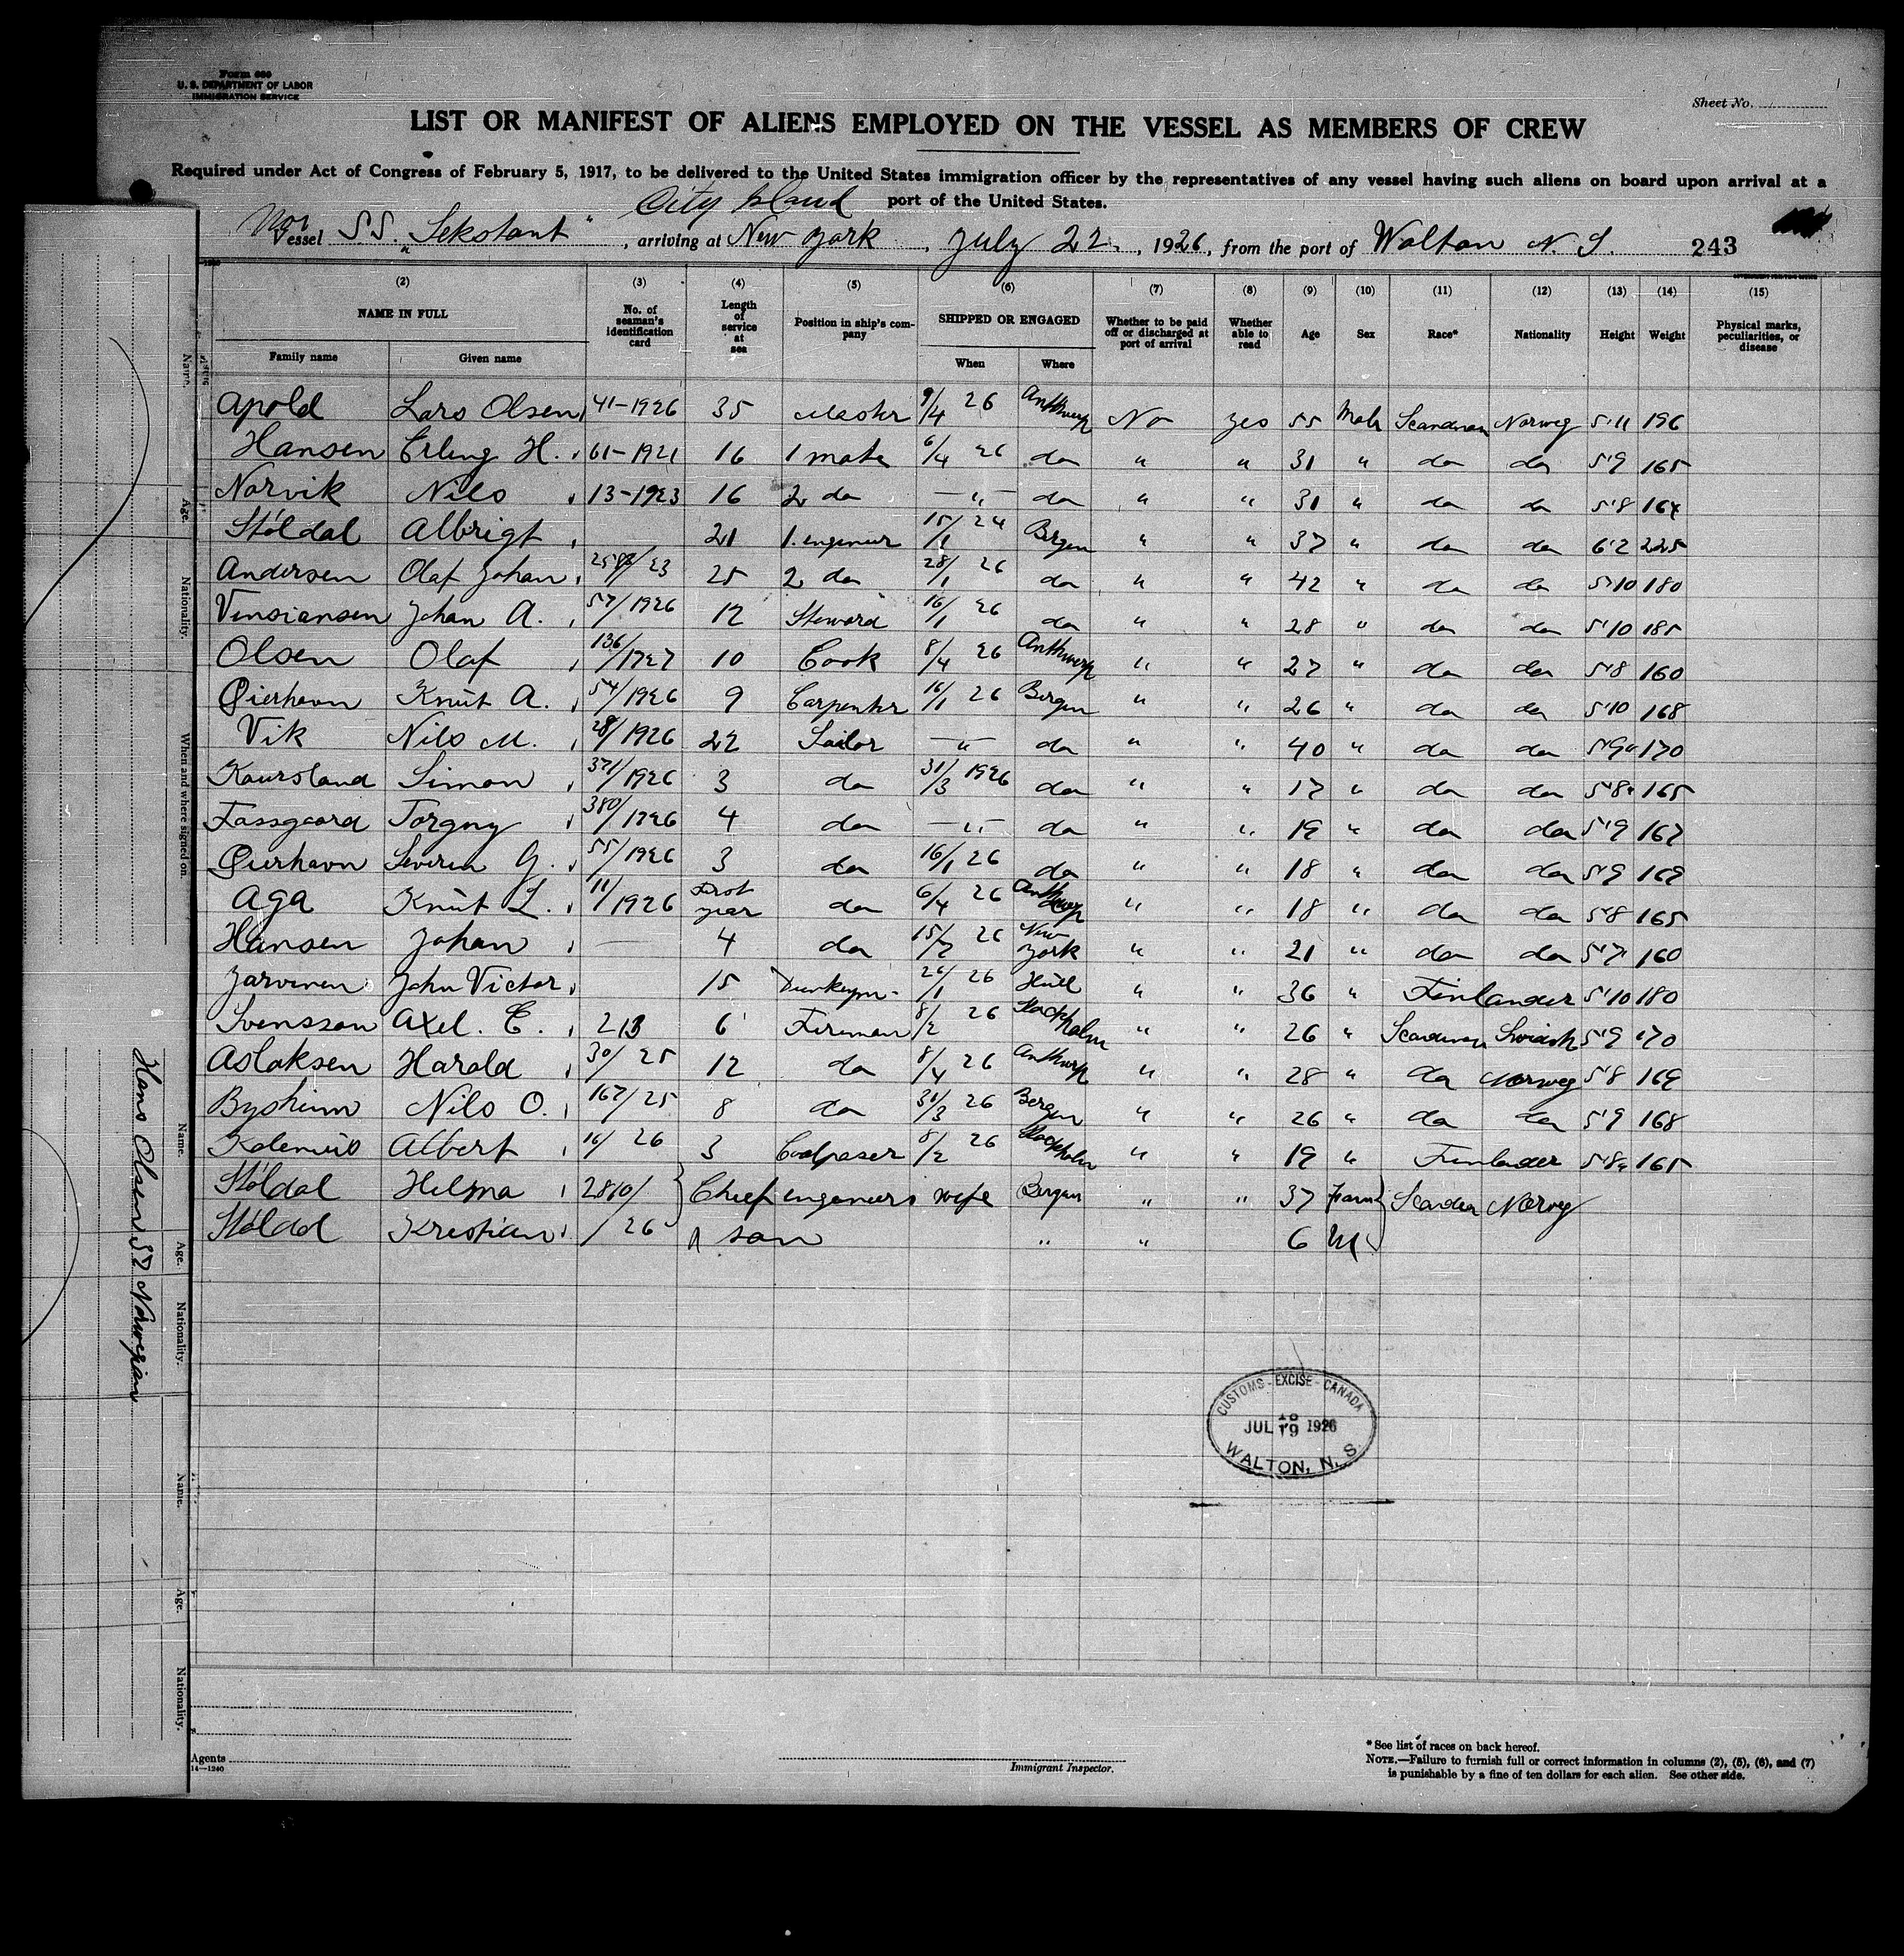 Form 680
U. S. DEPARTMENT OF LABOR
IMMIGRATION SERVICE
Sheet No.
LIST OR MANIFEST OF ALIENS EMPLOYED ON THE VESSEL AS MEMBERS OF CREW
Required under Act of Congress of February 5, 1917, to be delivered to the United States immigration officer by the representatives of any vessel having such aliens on board upon arrival at a
City Island port of the United States.
Nor Vessel S.S. "Sekstant", arriving at New York, July 22, 1926, from the port of Walton N.S. 243
(2) (3) (4) (5) (6) (7) (8) (9) (10) (11) (12) (13) (14) (15)
NAME IN FULL No. of seaman's identification card Length of service at sea Position in ship's company SHIPPED OR ENGAGED Whether to be paid off or discharged at port of arrival Whether able to read Age Sex Race* Nationality Height Weight Physical marks, peculiarities, or disease
Family name Given name When Where
Apold Lars Olsen 41-1926 35 Master 9/4 26 Anthwerp No Yes 55 Male Scandinav Norweg 5'11 196
Hansen Erling H. 61-1921 16 1 mate 6/4 26 do " " 31 " do do 5'9 165
Norvik Nils 13-1923 16 2 do —"— do " " 31 " do do 5'8 164
Stöldal Albrigt 21 1. engeneer 15/1 24 Bergen " " 37 " do do 6'2 225
Andersen Olaf Johan 25 2 do 28/1 26 do " " 42 " do do 5'10 180
Johan A. 57/1926 12 Steward 16/1 26 do " " 28 " do do 5'10 185
Olsen Olaf 136/1927 10 Cook 8/4 26 Anthwerp " " 27 " do do 5'8 160
Øierhavn Knut A. 54/1926 9 Carpenter 16/1 26 Bergen " " 26 " do do 5'10 168
Vik Nils M. 28/1926 22 Sailor —"— do " " 40 " do do 5'9 170
Kaursland Simon 371/1926 3 do 31/3 1926 do " " 17 " do do 5'8 165
Fassgaard Torgny 380/1926 4 do —"— do " " 19 " do do 5'9 167
Øierhavn Severin G. 55/1926 3 do 16/1 26 do " " 18 " do do 5'9 169
Aga Knut L. 11/1926 First year do 6/4 26 Anthwerp " " 18 " do do 5'8 165
Hansen Johan — 4 do 15/7 26 New York " " 21 " do do 5'7 160
Jarvinen John Victor 15 Dunkeym- 26/1 26 Hull " " 36 " Finlander 5'10 180
Svensson Axel. E. 213 6 Fireman 8/2 26 Stockholm " " 26 " Scandinav Swidish 5'9 170
Aslaksen Harald 30/25 12 do 8/4 26 Anthwerp " " 28 " do Norweg 5'8 169
Bysheim Nils O. 167/25 8 do 31/3 26 Bergen " " 26 " do do 5'9 168
Albert 16/26 3 Coalpaser 8/2 26 Stockholm " " 19 " Finlander 5'8 165
Stöldal Helma 2810/ Chief engeneers wife Bergen " " 37 Fam Scandin Norweg
Stöldal Kristian /26 " son " " 6 M
CUSTOMS-EXCISE-CANADA
JUL 19 1926
WALTON, N. S.
Name. Age. Nationality. When and where signed on.
Name. Age. Nationality.
Hans Olsen 52 Norwegian
Name. Age. Nationality.
Agents
14—1240
Immigrant Inspector.
* See list of races on back hereof.
NOTE.—Failure to furnish full or correct information in columns (2), (5), (6), and (7)
is punishable by a fine of ten dollars for each alien. See other side.